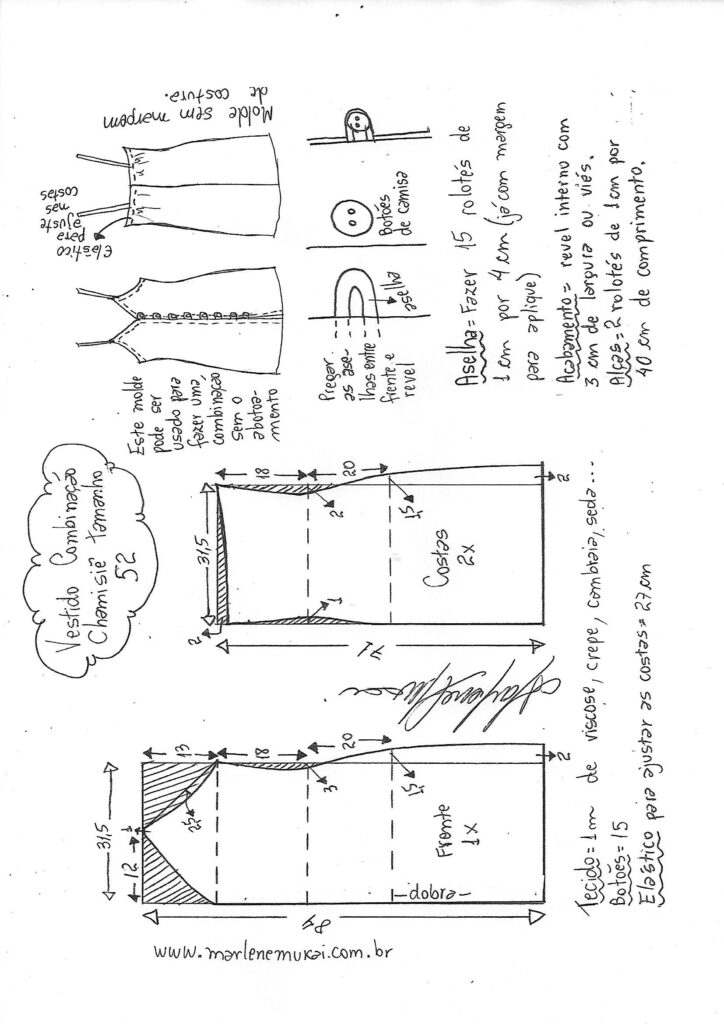 Vestido Combinação
Chamisiê Tamanho
52
Este molde
pode ser
usado para
fazer uma
combinação
sem o
abotoa-
mento
Elástico
para
ajuste
nas
costas
Molde sem margem
de costura.
Pregar
as ase-
lhas entre
frente e
revel
aselha
Botões
de camisa
Aselha = Fazer 15 rolotés de
1 cm por 4 cm (já com margem
para aplique)
Acabamento = revel interno com
3 cm de largura ou viés.
Alças = 2 rolotés de 1 cm por
40 cm de comprimento.
31,5
12
1
13
18
20
2,5
3
1,5
2
84
Frente
1x
—dobra—
31,5
2
18
20
2
1
1,5
2
71
Costas
2x
www.marlenemukai.com.br
Tecido = 1m de viscose, crepe, cambraia, seda...
Botões = 15
Elástico para ajustar as costas = 27 cm